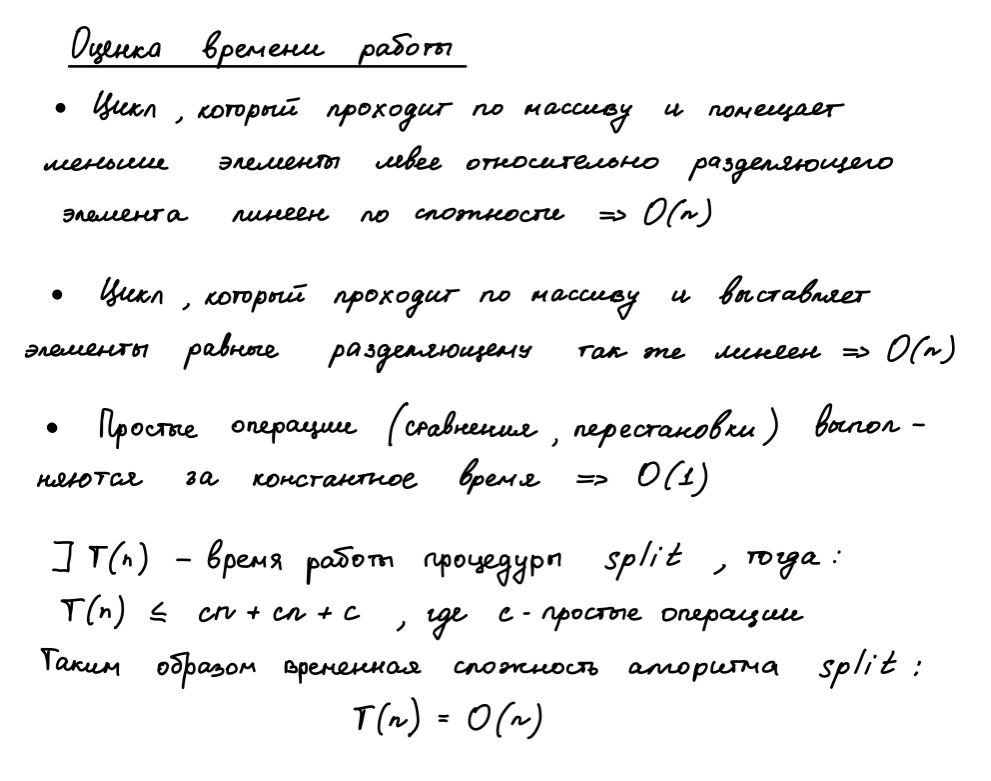 Оценка времени работы
• Цикл, который проходит по массиву и помещает
меньшие элементы левее относительно разделяющего
элемента линеен по сложности => O(n)
• Цикл, который проходит по массиву и выставляет
элементы равные разделяющему так же линеен => O(n)
• Простые операции (сравнения, перестановки) выпол -
няются за константное время => O(1)
] T(n) - время работы процедуры split, тогда:
T(n) ≤ cn + cn + c, где c - простые операции
Таким образом временная сложность алгоритма split:
T(n) = O(n)